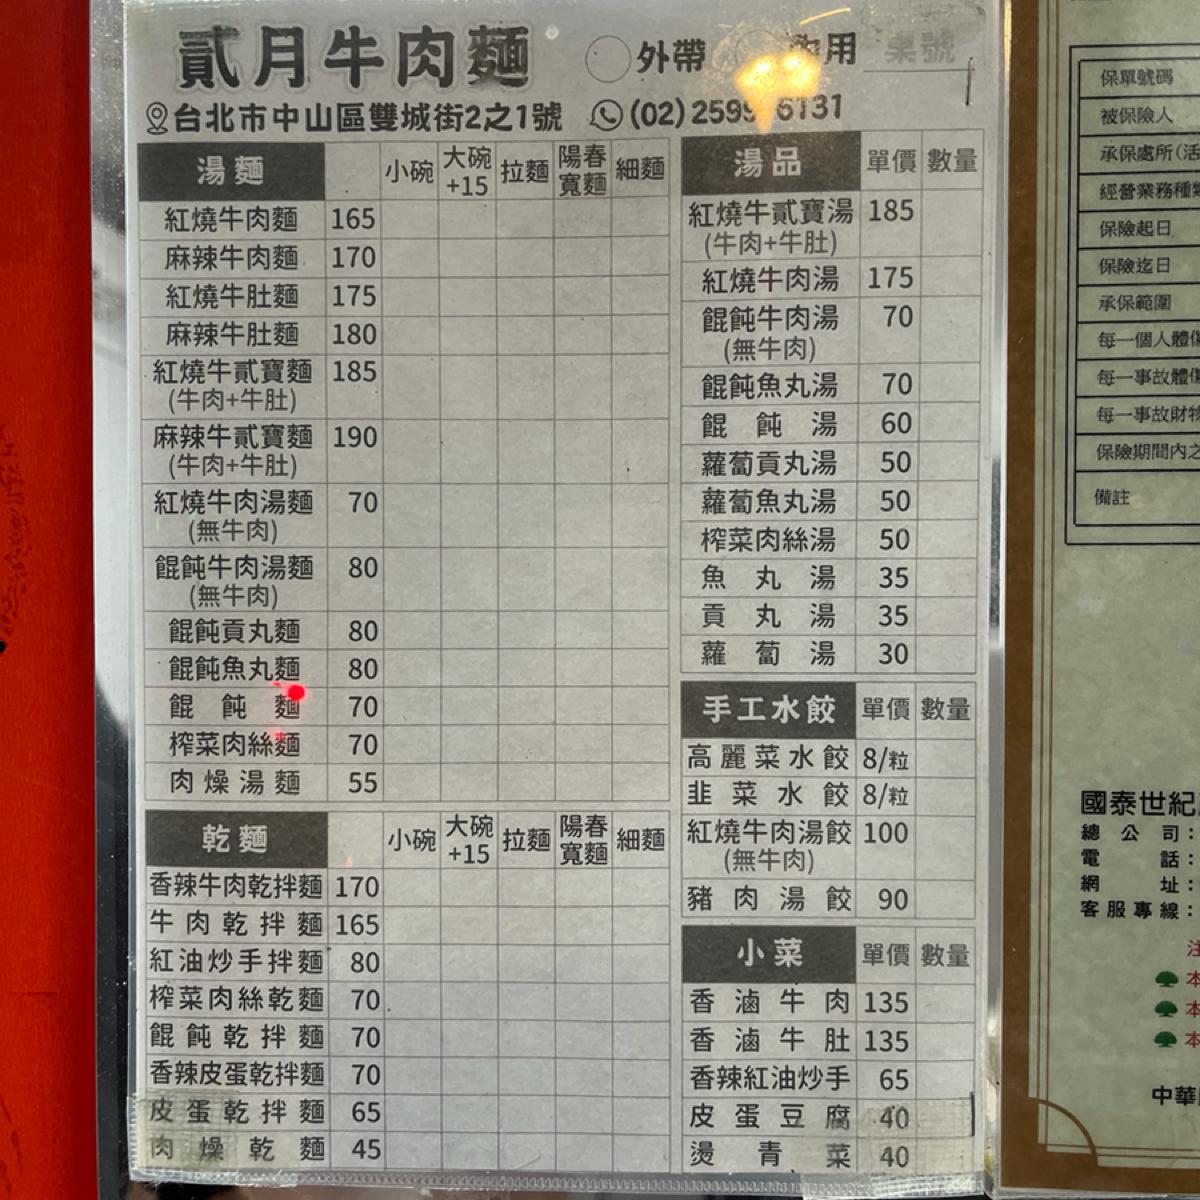 貳月牛肉麵
外帶
內用
桌號
台北市中山區雙城街2之1號
(02)2599-6131
湯麵 小碗 大碗+15 拉麵 陽春寬麵 細麵
紅燒牛肉麵 165
麻辣牛肉麵 170
紅燒牛肚麵 175
麻辣牛肚麵 180
紅燒牛貳寶麵 185
(牛肉+牛肚)
麻辣牛貳寶麵 190
(牛肉+牛肚)
紅燒牛肉湯麵 70
(無牛肉)
餛飩牛肉湯麵 80
(無牛肉)
餛飩貢丸麵 80
餛飩魚丸麵 80
餛飩麵 70
榨菜肉絲麵 70
肉燥湯麵 55
乾麵 小碗 大碗+15 拉麵 陽春寬麵 細麵
香辣牛肉乾拌麵 170
牛肉乾拌麵 165
紅油炒手拌麵 80
榨菜肉絲乾麵 70
餛飩乾拌麵 70
香辣皮蛋乾拌麵 70
皮蛋乾拌麵 65
肉燥乾麵 45
湯品 單價 數量
紅燒牛貳寶湯 185
(牛肉+牛肚)
紅燒牛肉湯 175
餛飩牛肉湯 70
(無牛肉)
餛飩魚丸湯 70
餛飩湯 60
蘿蔔貢丸湯 50
蘿蔔魚丸湯 50
榨菜肉絲湯 50
魚丸湯 35
貢丸湯 35
蘿蔔湯 30
手工水餃 單價 數量
高麗菜水餃 8/粒
韭菜水餃 8/粒
紅燒牛肉湯餃 100
(無牛肉)
豬肉湯餃 90
小菜 單價 數量
香滷牛肉 135
香滷牛肚 135
香辣紅油炒手 65
皮蛋豆腐 40
燙青菜 40
保單號碼
被保險人
承保處所(活
經營業務種類
保險起日
保險迄日
承保範圍
每一個人體傷
每一事故體傷
每一事故財物
保險期間內之
備註
國泰世紀
總公司：
電話：
網址：
客服專線：
注
本
本
本
中華